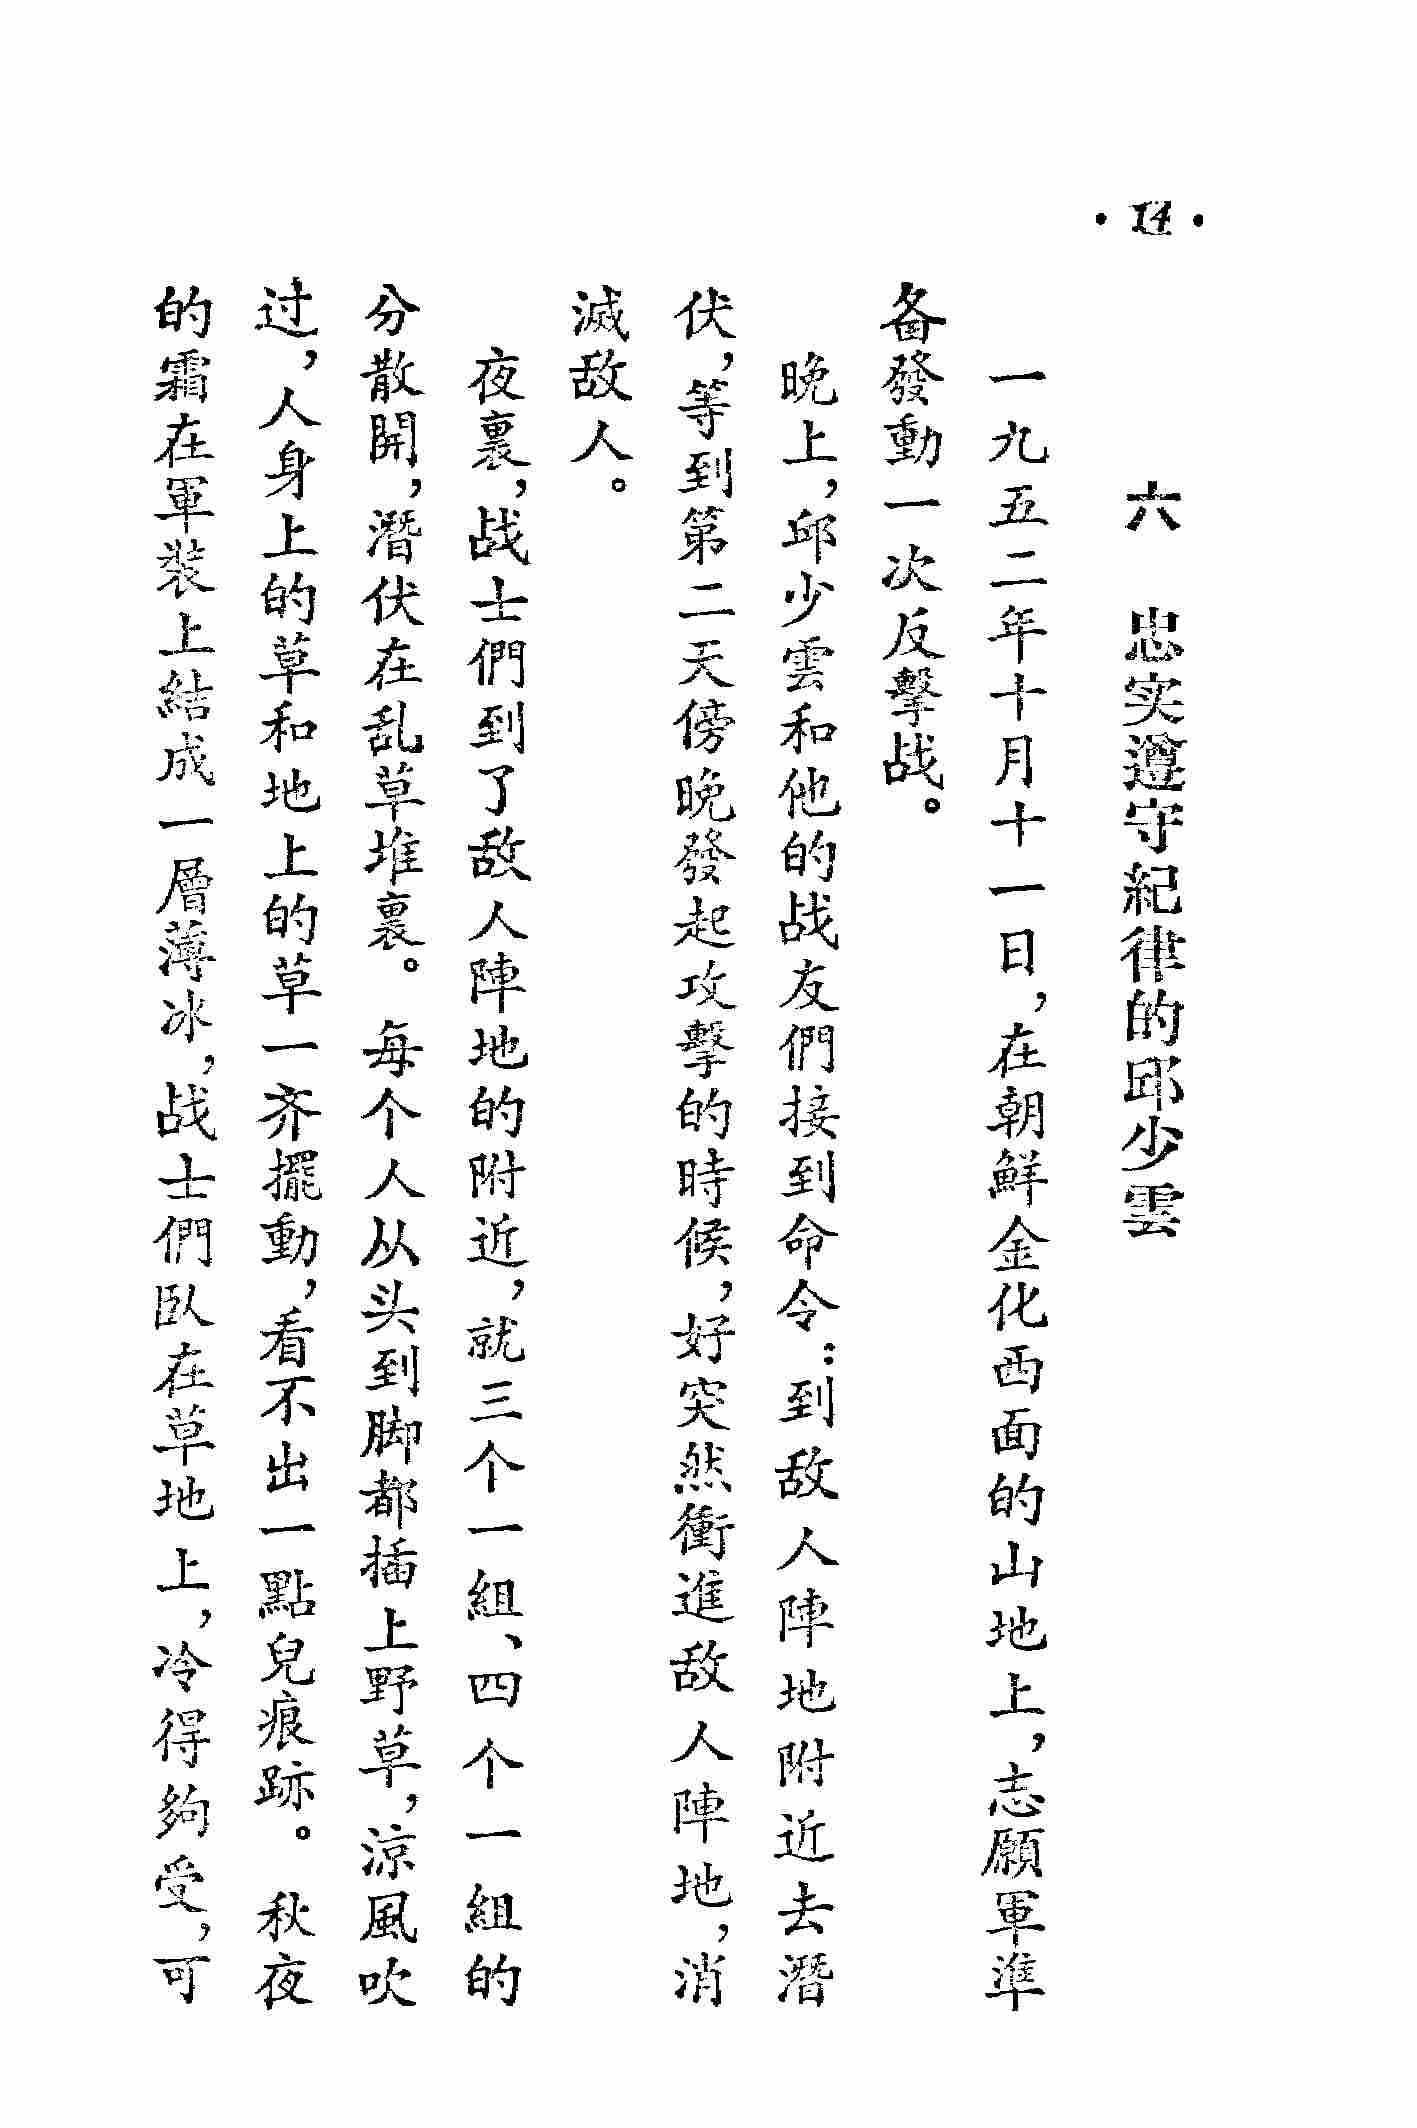 ·14·
六　忠实遵守紀律的邱少雲
一九五二年十月十一日，在朝鮮金化西面的山地上，志願軍準
备發動一次反擊战。
晚上，邱少雲和他的战友們接到命令：到敌人陣地附近去潛
伏，等到第二天傍晚發起攻擊的時候，好突然衝進敌人陣地，消
滅敌人。
夜裏，战士們到了敌人陣地的附近，就三个一組、四个一組的
分散開，潛伏在乱草堆裏。每个人从头到脚都插上野草，涼風吹
过，人身上的草和地上的草一齐擺動，看不出一點兒痕跡。秋夜
的霜在軍裝上結成一層薄冰，战士們臥在草地上，冷得夠受，可